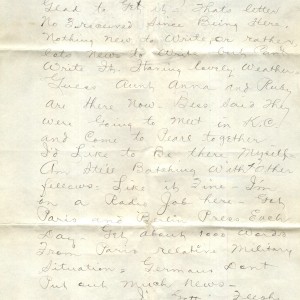 Glad to Get it. Thats letter
No I received Since Being Here.
Nothing New to Write, or rather
lots News to Write but Cant
Write It. Having lovely Weather
Guess Aunt Anna and Ruby
Are there Now. Bess Said They
were Going to Meet in K.C.
and Come to Pearl together
I'd Like to Be there, Myself-
Am Still Batching With 4 Other
fellows- Like it Fine- I'm
on a Radio Job here- Get
Paris and Berlin Press Each
Day Get about 1000 Words
From Paris relative Military
Situation Germans Dont
Put out Much News-